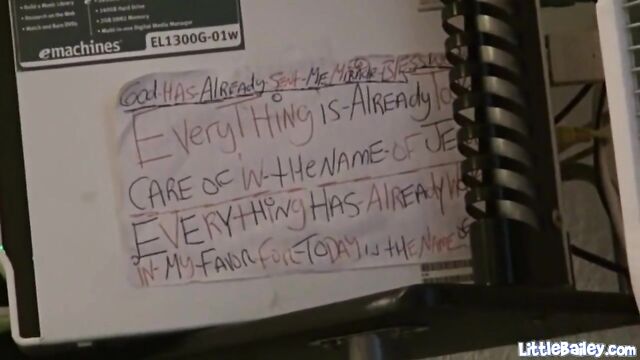 Build a Music Library
Research on the Web
Watch and Burn DVDs
160GB Hard Drive
2GB DDR2 Memory
Multi-in-one Digital Media Manager
emachines
EL1300G-01w
God HAS Already Sent ME Miracle
EveryTHING is Already
CARE OF IN THE NAME OF JE
EVERYTHING HAS Already
IN MY FAVOR FOR TODAY IN THE NAME
LittleBailey.com